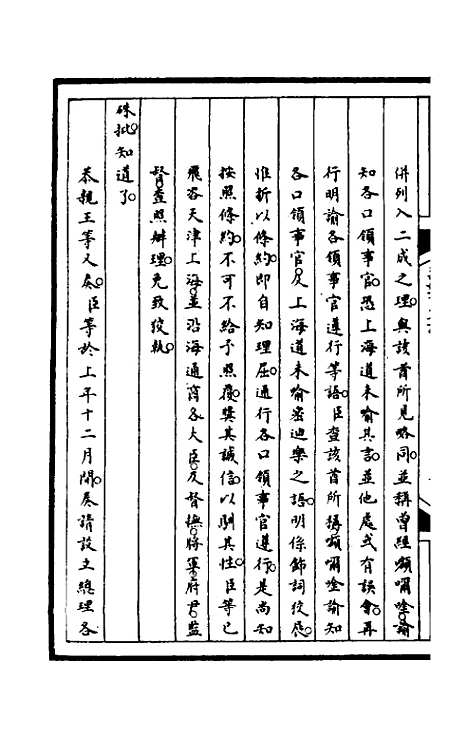 併列入二成之理。與該酋所見略同。並稱曾經嚬嘣唫諭
知各口領事官。恐上海道未喻其言。並他處或有誤會。再
行明諭各領事官遵行等語。臣查該酋所稱嚬嘣唫諭知
各口領事官。及上海道未喻密迪樂之語。明係飾詞狡展。
惟折以條約。即自知理屈。通行各口領事官遵行。是尚知
按照條約。不可不給予照覆。獎其誠信。以馴其性。臣等已
飛咨天津上海。並沿海通商各大臣。及督撫。將軍。府尹。監
督。查照辦理。免致狡執。
硃批。知道了。
恭親王等又奏。臣等於上年十二月間。奏請設立總理各